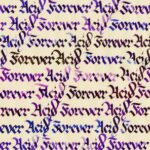 Forever Acid Forever Acid
Forever Acid Forever Acid
Forever Acid Forever Acid
Forever Acid Forever Acid
Forever Acid Forever Acid
Forever Acid Forever Acid
Forever Acid Forever Acid
Forever Acid Forever Acid